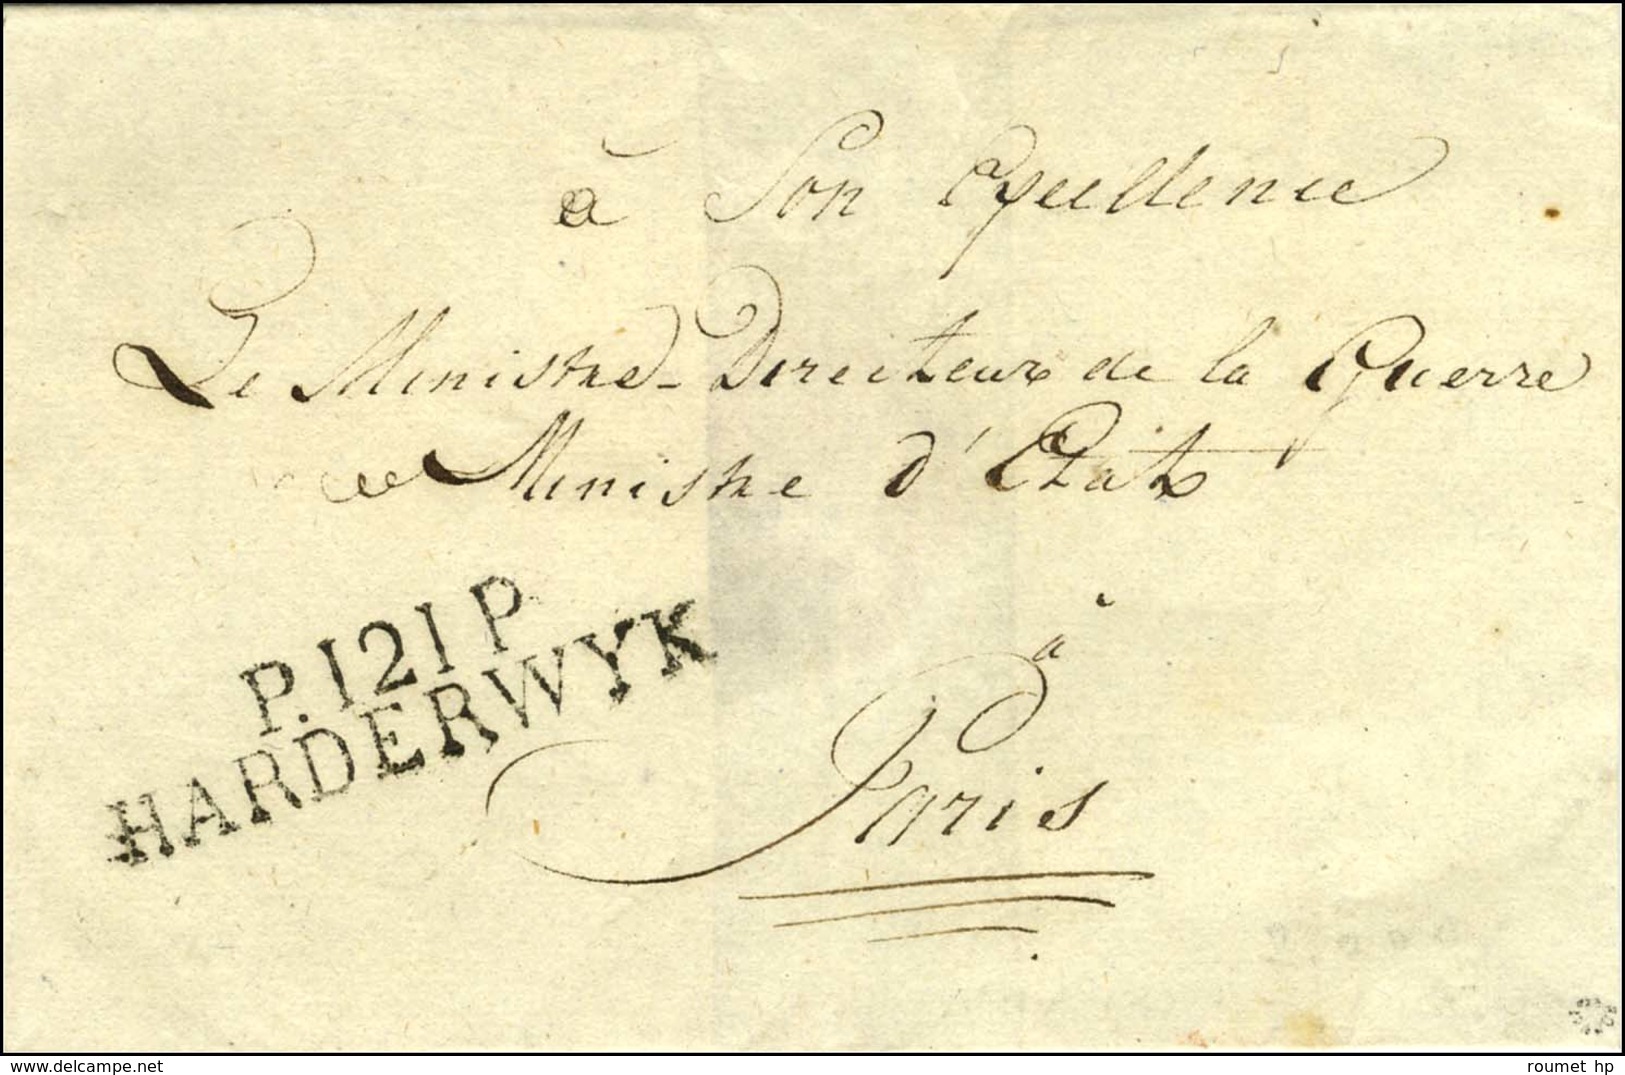 à Son Excellence
Le Ministre Directeur de la Guerre
Ministre d'Etat
à
Paris
P.121P
HARDERWYK
roumet hp